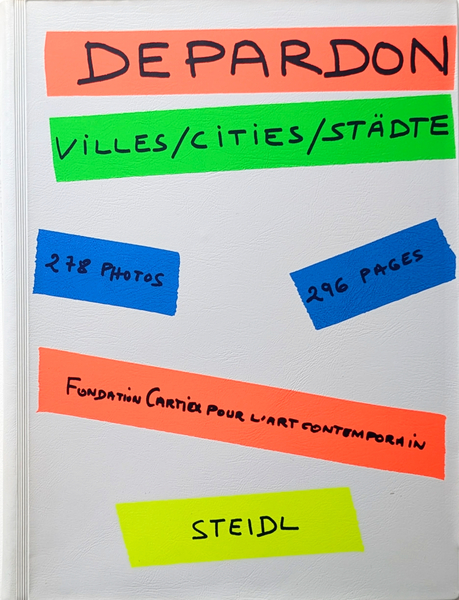 DEPARDON
VILLES/CITIES/STÄDTE
278 PHOTOS
296 PAGES
FONDATION CARTIER POUR L'ART CONTEMPORAIN
STEIDL